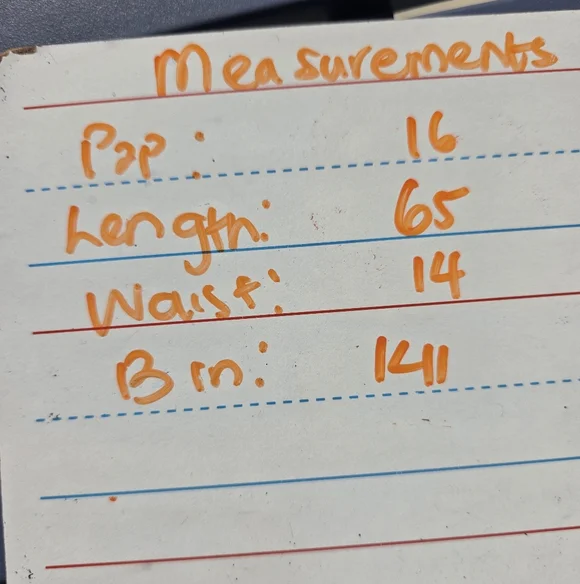 Measurements
Pap: 16
Length: 65
Waist: 14
Bin: 1411